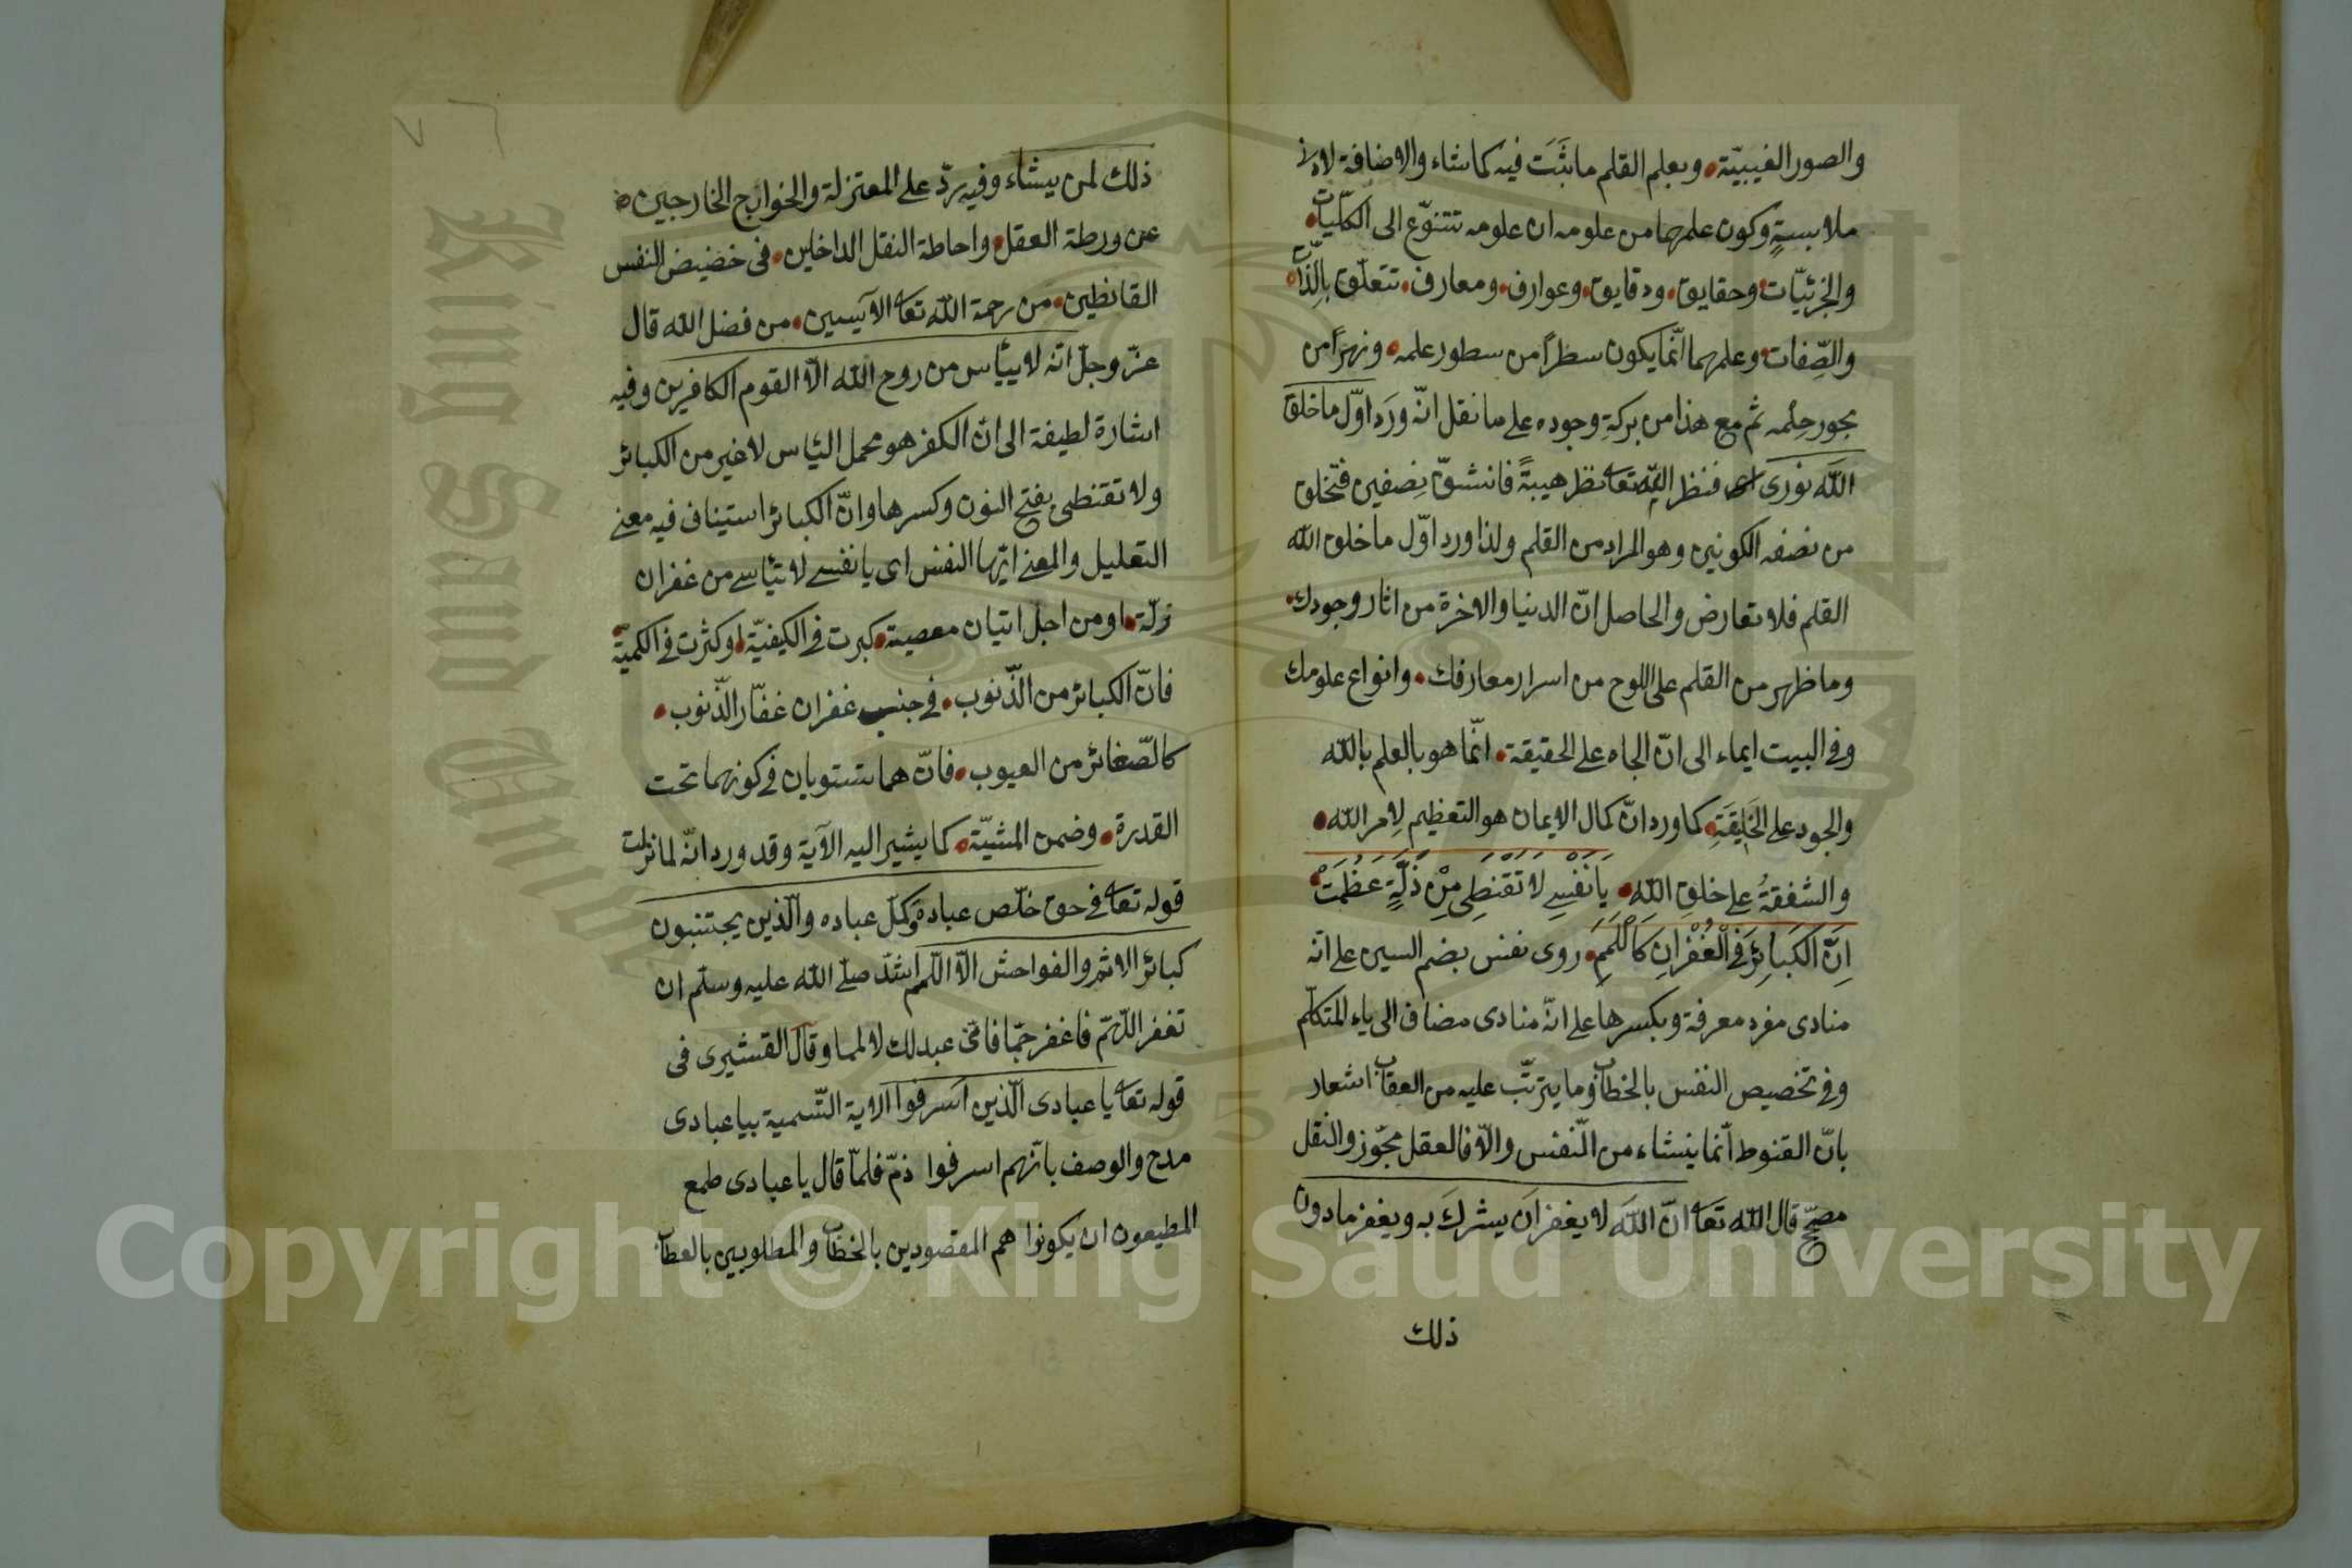 والصور الغيبيّة، وبعلم القلم ما ثَبَت فيه كما شاء والاضافة لادنى
ملابسةٍ وكون علمهما من علومه ان علومه تتنوّع الى الكلّيات
والجزئيّات وحقايق، ودقايق، وعوارف، ومعارف، تتعلّق بالذّات
والصِّفات، وعلمهما انّما يكون سطرًا من سطور علمه، ونهرًا من
بحور حِلْمه ثم مع هذا من بركةِ وجوده على ما نقل انّه وَرَد اوّل ما خلق
اللَه نورى اى فنظر اليه تعا نظر هيبةً فانشقّ نِصفين فخلق
من نصفه الكونين وهو المراد من القلم ولذا ورد اوّل ما خلق الله
القلم فلا تعارض والحاصل انّ الدنيا والاخرة من اثار وجودك،
وما ظهر من القلم على اللوح من اسرار معارفك، وانواع علومك
وفى البيت ايماء الى انّ الجاه على الحقيقة، انّما هو بالعلم بالله
والجود على الخَلِيقَةِ، كما ورد انّ كمال الايمان هو التعظيم لِامر الله،
والشفقةُ على خلقِ اللهِ، يَا نَفْسِ لَا تَقْنَطِى مِنْ زَلَّةٍ عَظُمَتْ
اِنَّ الكَبَائِرَ فِى الْغُفْرَانِ كَاللَّمَمِ، روى نفس بضم السين على انّه
منادى مفرد معرفة وبكسرها على انّه منادى مضاف الى ياء المتكلّم
وفى تخصيص النفس بالخطاب وما يترتّب عليه من العقاب اشعار
بانّ القنوط انّما ينشاء من النّفس والّا فالعقل مجوّز والنقل
مصحّح قال الله تعَا انّ اللَه لا يغفر اَن يشرك به ويغفر ما دون
ذلك
ذلك لمن يشاء وفيه ردّ على المعتزلة والخوارج الخارجين
عن ورطة العقل، واحاطة النقل الداخلين، فى خضيض النفس
القانطين، من رحمة الله تعا الآيسين، من فضل الله قال
عزّ وجلّ انّه لا ييأس من روح الله الّا القوم الكافرين وفيه
اشارة لطيفة الى انّ الكفر هو محمل اليأس لا غير من الكبائر
ولا تقنطى بفتح النون وكسرها وانّ الكبائر استيناف فيه معنى
التعليل والمعنى ايّها النفس اى يا نفسى لا تيأسى من غفران
زلّة، او من اجل اتيان معصية، كبرت فى الكيفيّة، او كثرت فى الكميّة
فانّ الكبائر من الذّنوب، فى جنب غفران غفّار الذّنوب،
كالصّغائر من العيوب، فانّ هما ستويان فى كونهما تحت
القدرة، وضمن المشيّة، كما يشير اليه الآية وقد ورد انّه لما نزلت
قوله تعا فى حق خلّص عباده وكلّ عباده والّذين يجتنبون
كبائر الاثم والفواحش الّا اللمم انشد صلّى الله عليه وسلّم ان
تغفر اللّهمّ فاغفر جمّا فاىّ عبد لك لا لما وقال القشيرى فى
قوله تعا يا عبادى الّذين اسرفوا الاية التّسمية بيا عبادى
مدح والوصف بانّهم اسرفوا ذمّ فلمّا قال يا عبادى طمع
المطيعون ان يكونوا هم المقصودين بالخطاب والمطلوبين بالعطاب
King Saud Univer
Copyright © King Saud University